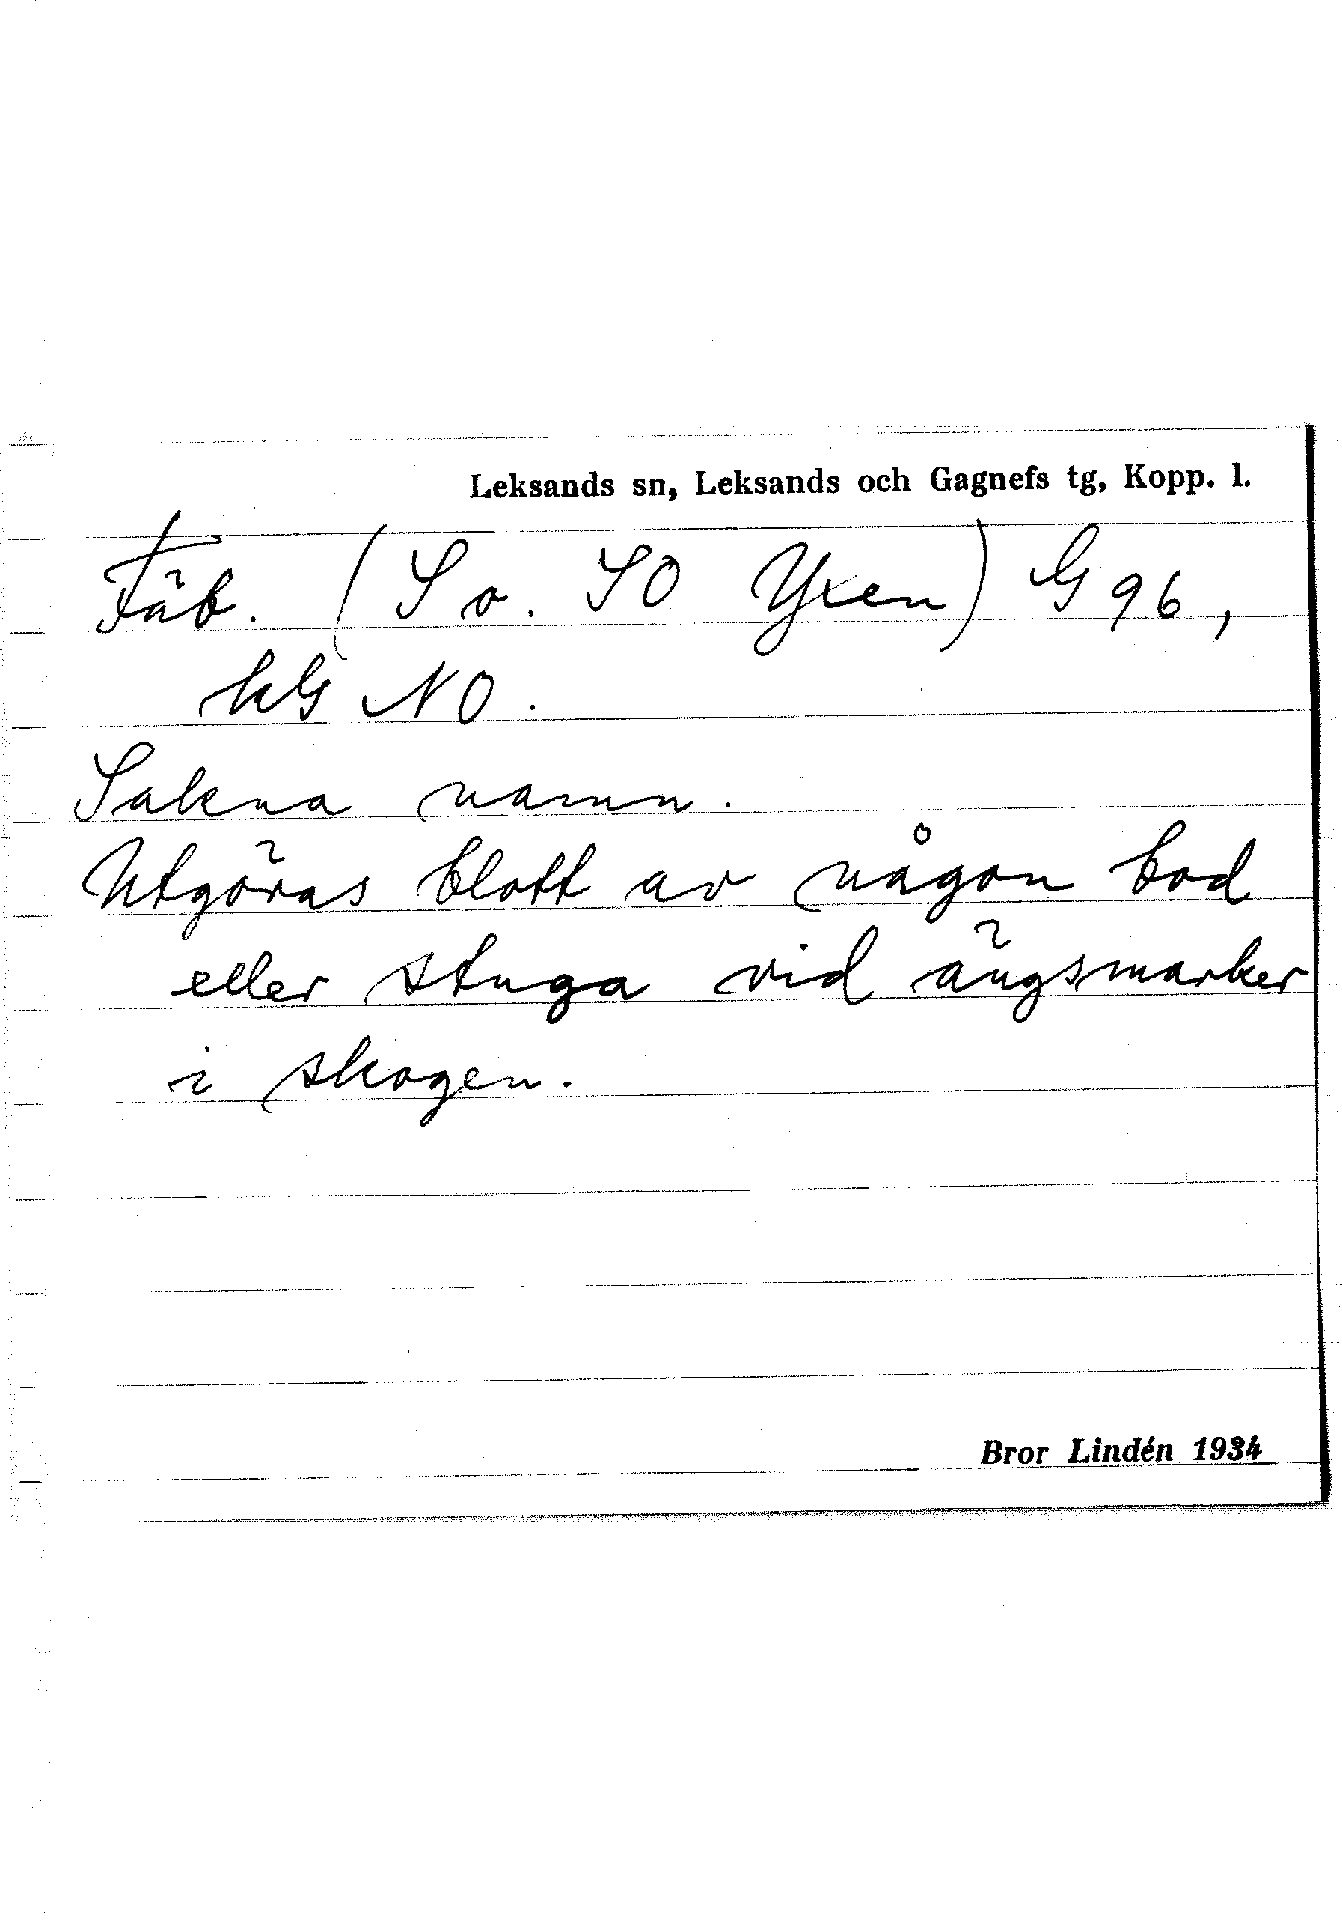 Leksands sn, Leksands och Gagnefs tg, Kopp. l.
Fäb. (S o. SO Yxen) G 96,
hG NO.
Sakna namn.
Utgöras blott av någon bod
eller stuga vid ängsmarker
i skogen.
Bror Lindén 1934